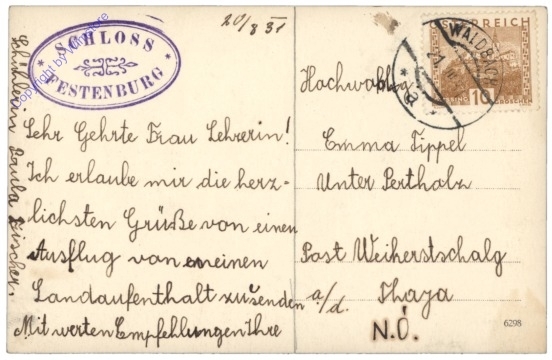 20/8 31
SCHLOSS
FESTENBURG
Sehr Gehrte Frau Lehrerin!
Ich erlaube mir die herz-
lichsten Grüße von einen
Ausflug von meinen
Landaufenthalt zu senden
Mit werten Empfehlungen Ihre
Schülerin Paula Fischer.
Hochwohlg
Emma Tippel
Unter Pertholz
Post Weiherstschalg
a/d. Thaya
N.Ö.
ÖSTERREICH
10
GROSCHEN
WALDBACH
6298
Copyright by